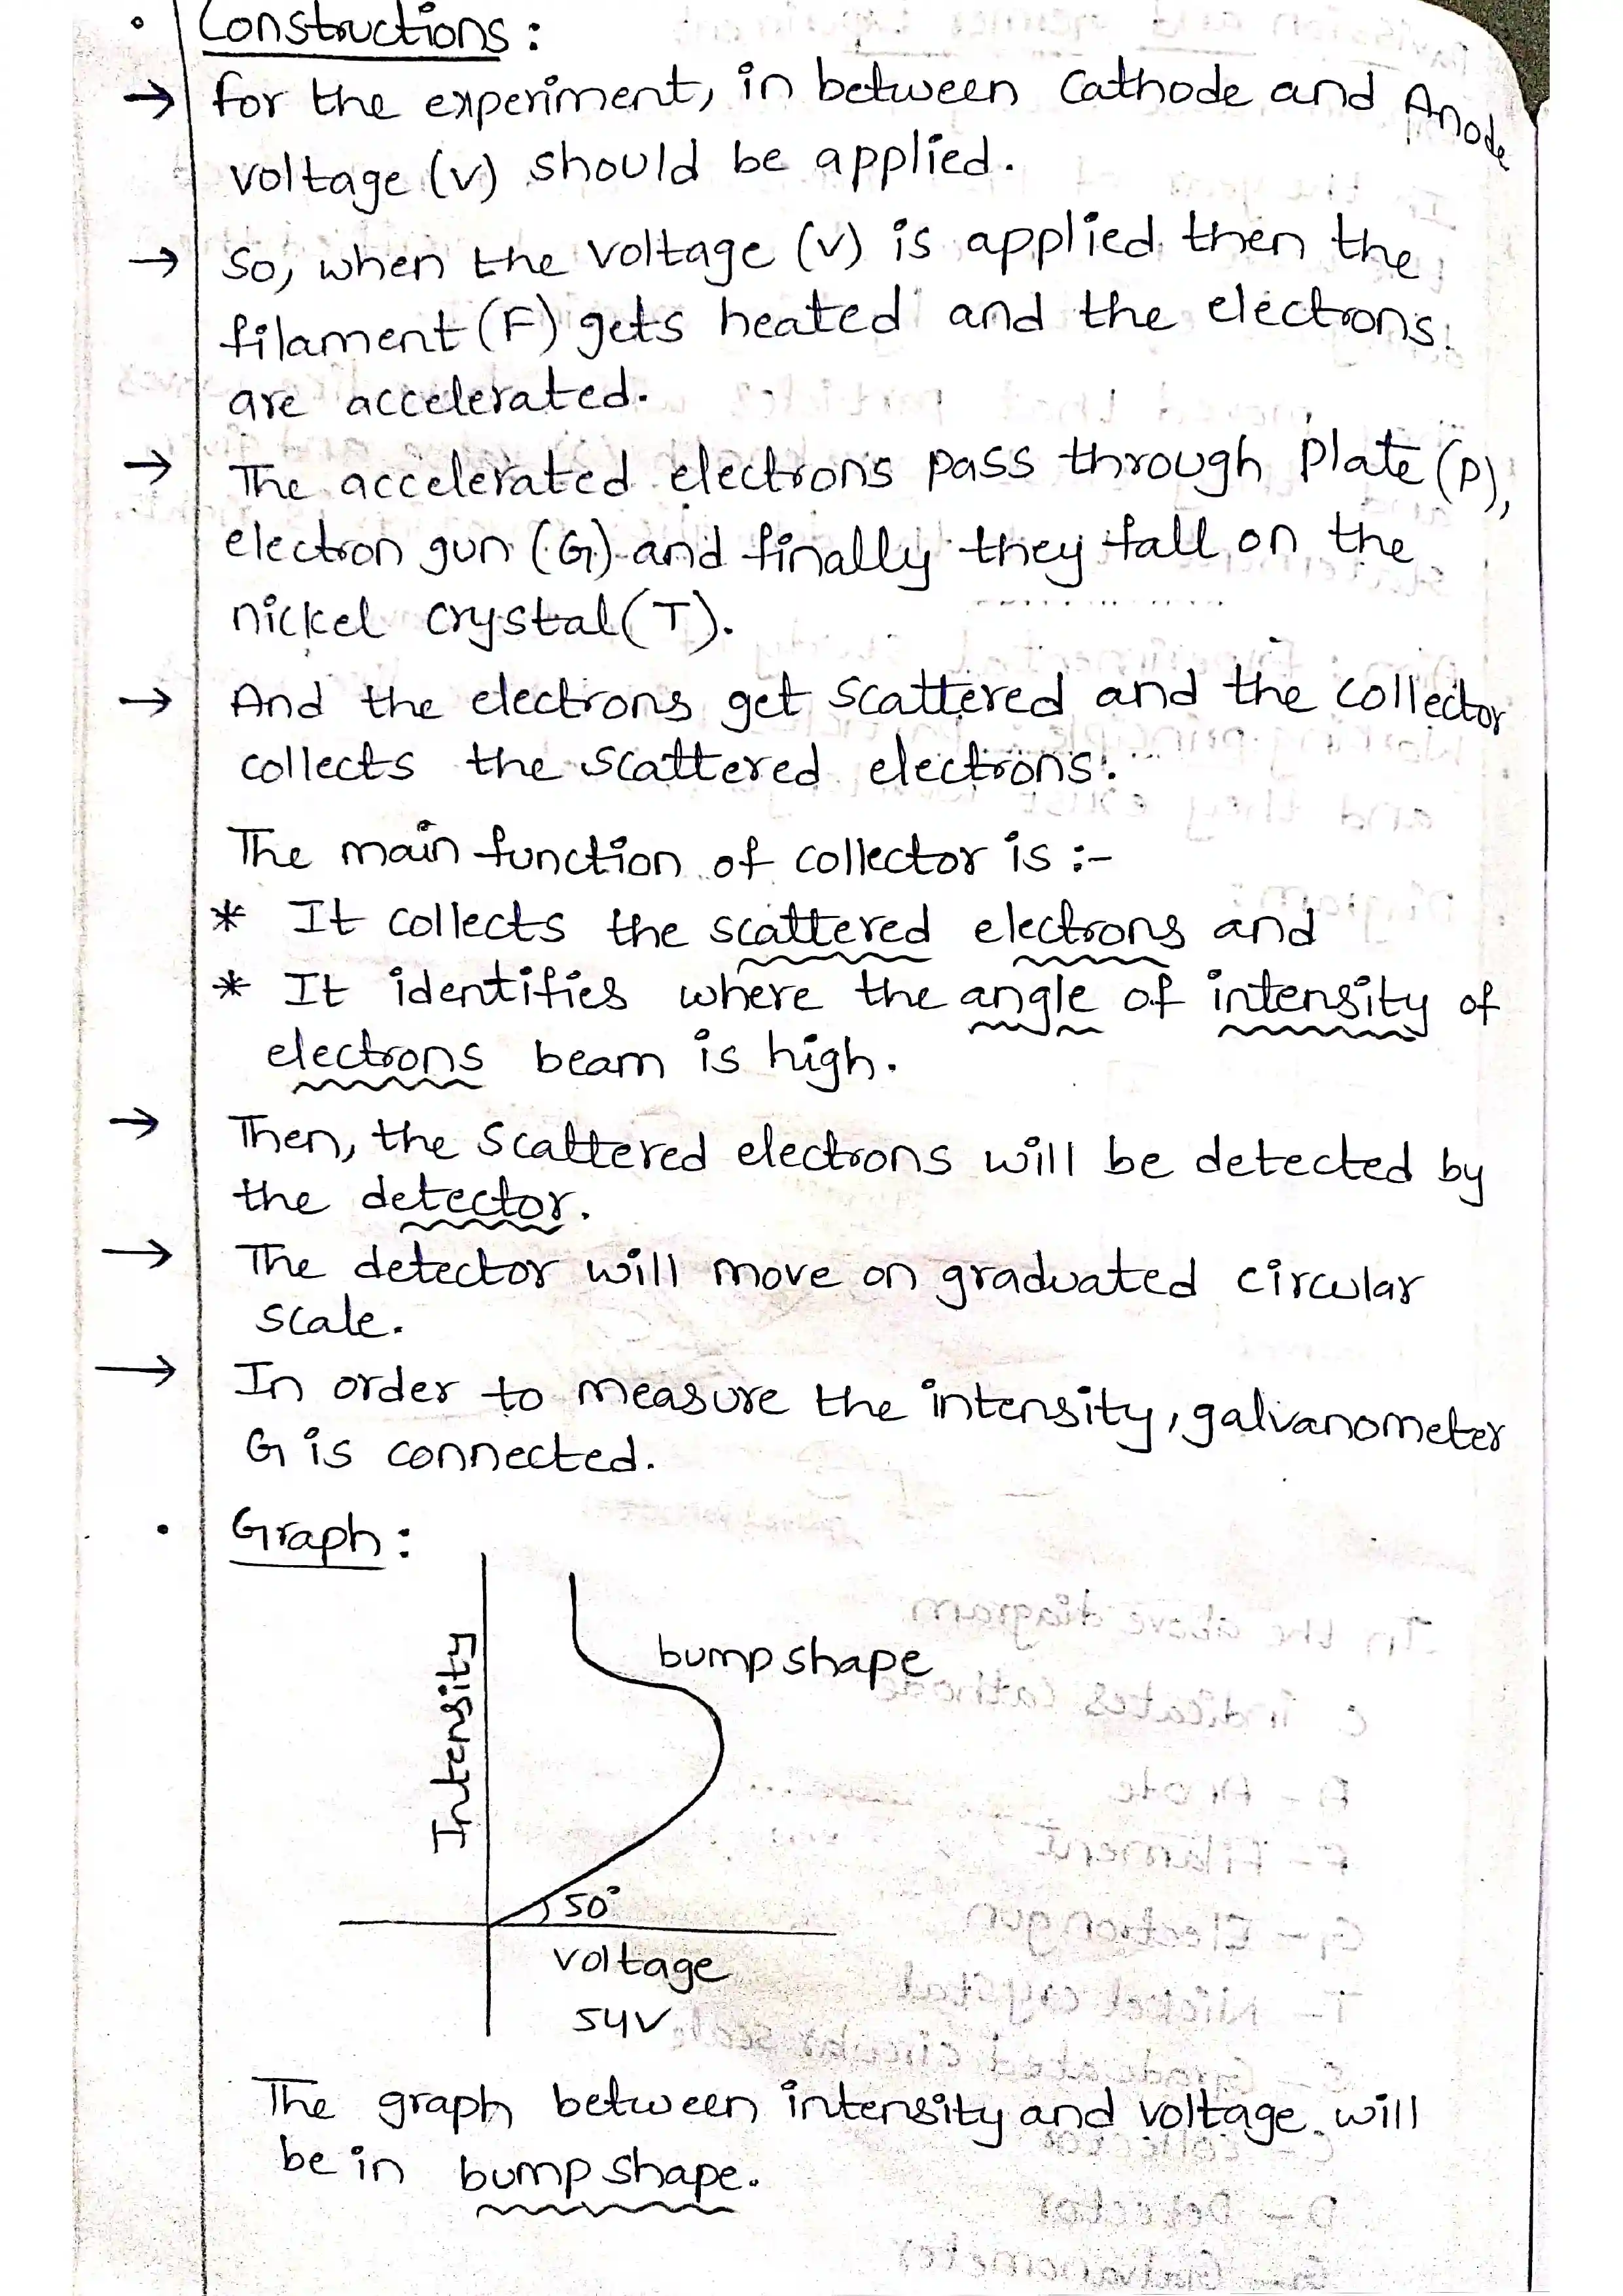 • Constructions :
→ for the experiment, in between Cathode and Anode
voltage (v) should be applied.
→ So, when the voltage (v) is applied then the
filament (F) gets heated and the electrons
are accelerated.
→ The accelerated electrons pass through plate (P),
electron gun (G) and finally they fall on the
nickel crystal (T).
→ And the electrons get scattered and the collector
collects the scattered electrons.
The main function of collector is :-
* It collects the scattered electrons and
* It identifies where the angle of intensity of
electrons beam is high.
→ Then, the scattered electrons will be detected by
the detector.
→ The detector will move on graduated circular
scale.
→ In order to measure the intensity, galvanometer
G is connected.
• Graph :
Intensity
bump shape
50°
voltage
54V
The graph between intensity and voltage will
be in bump shape.